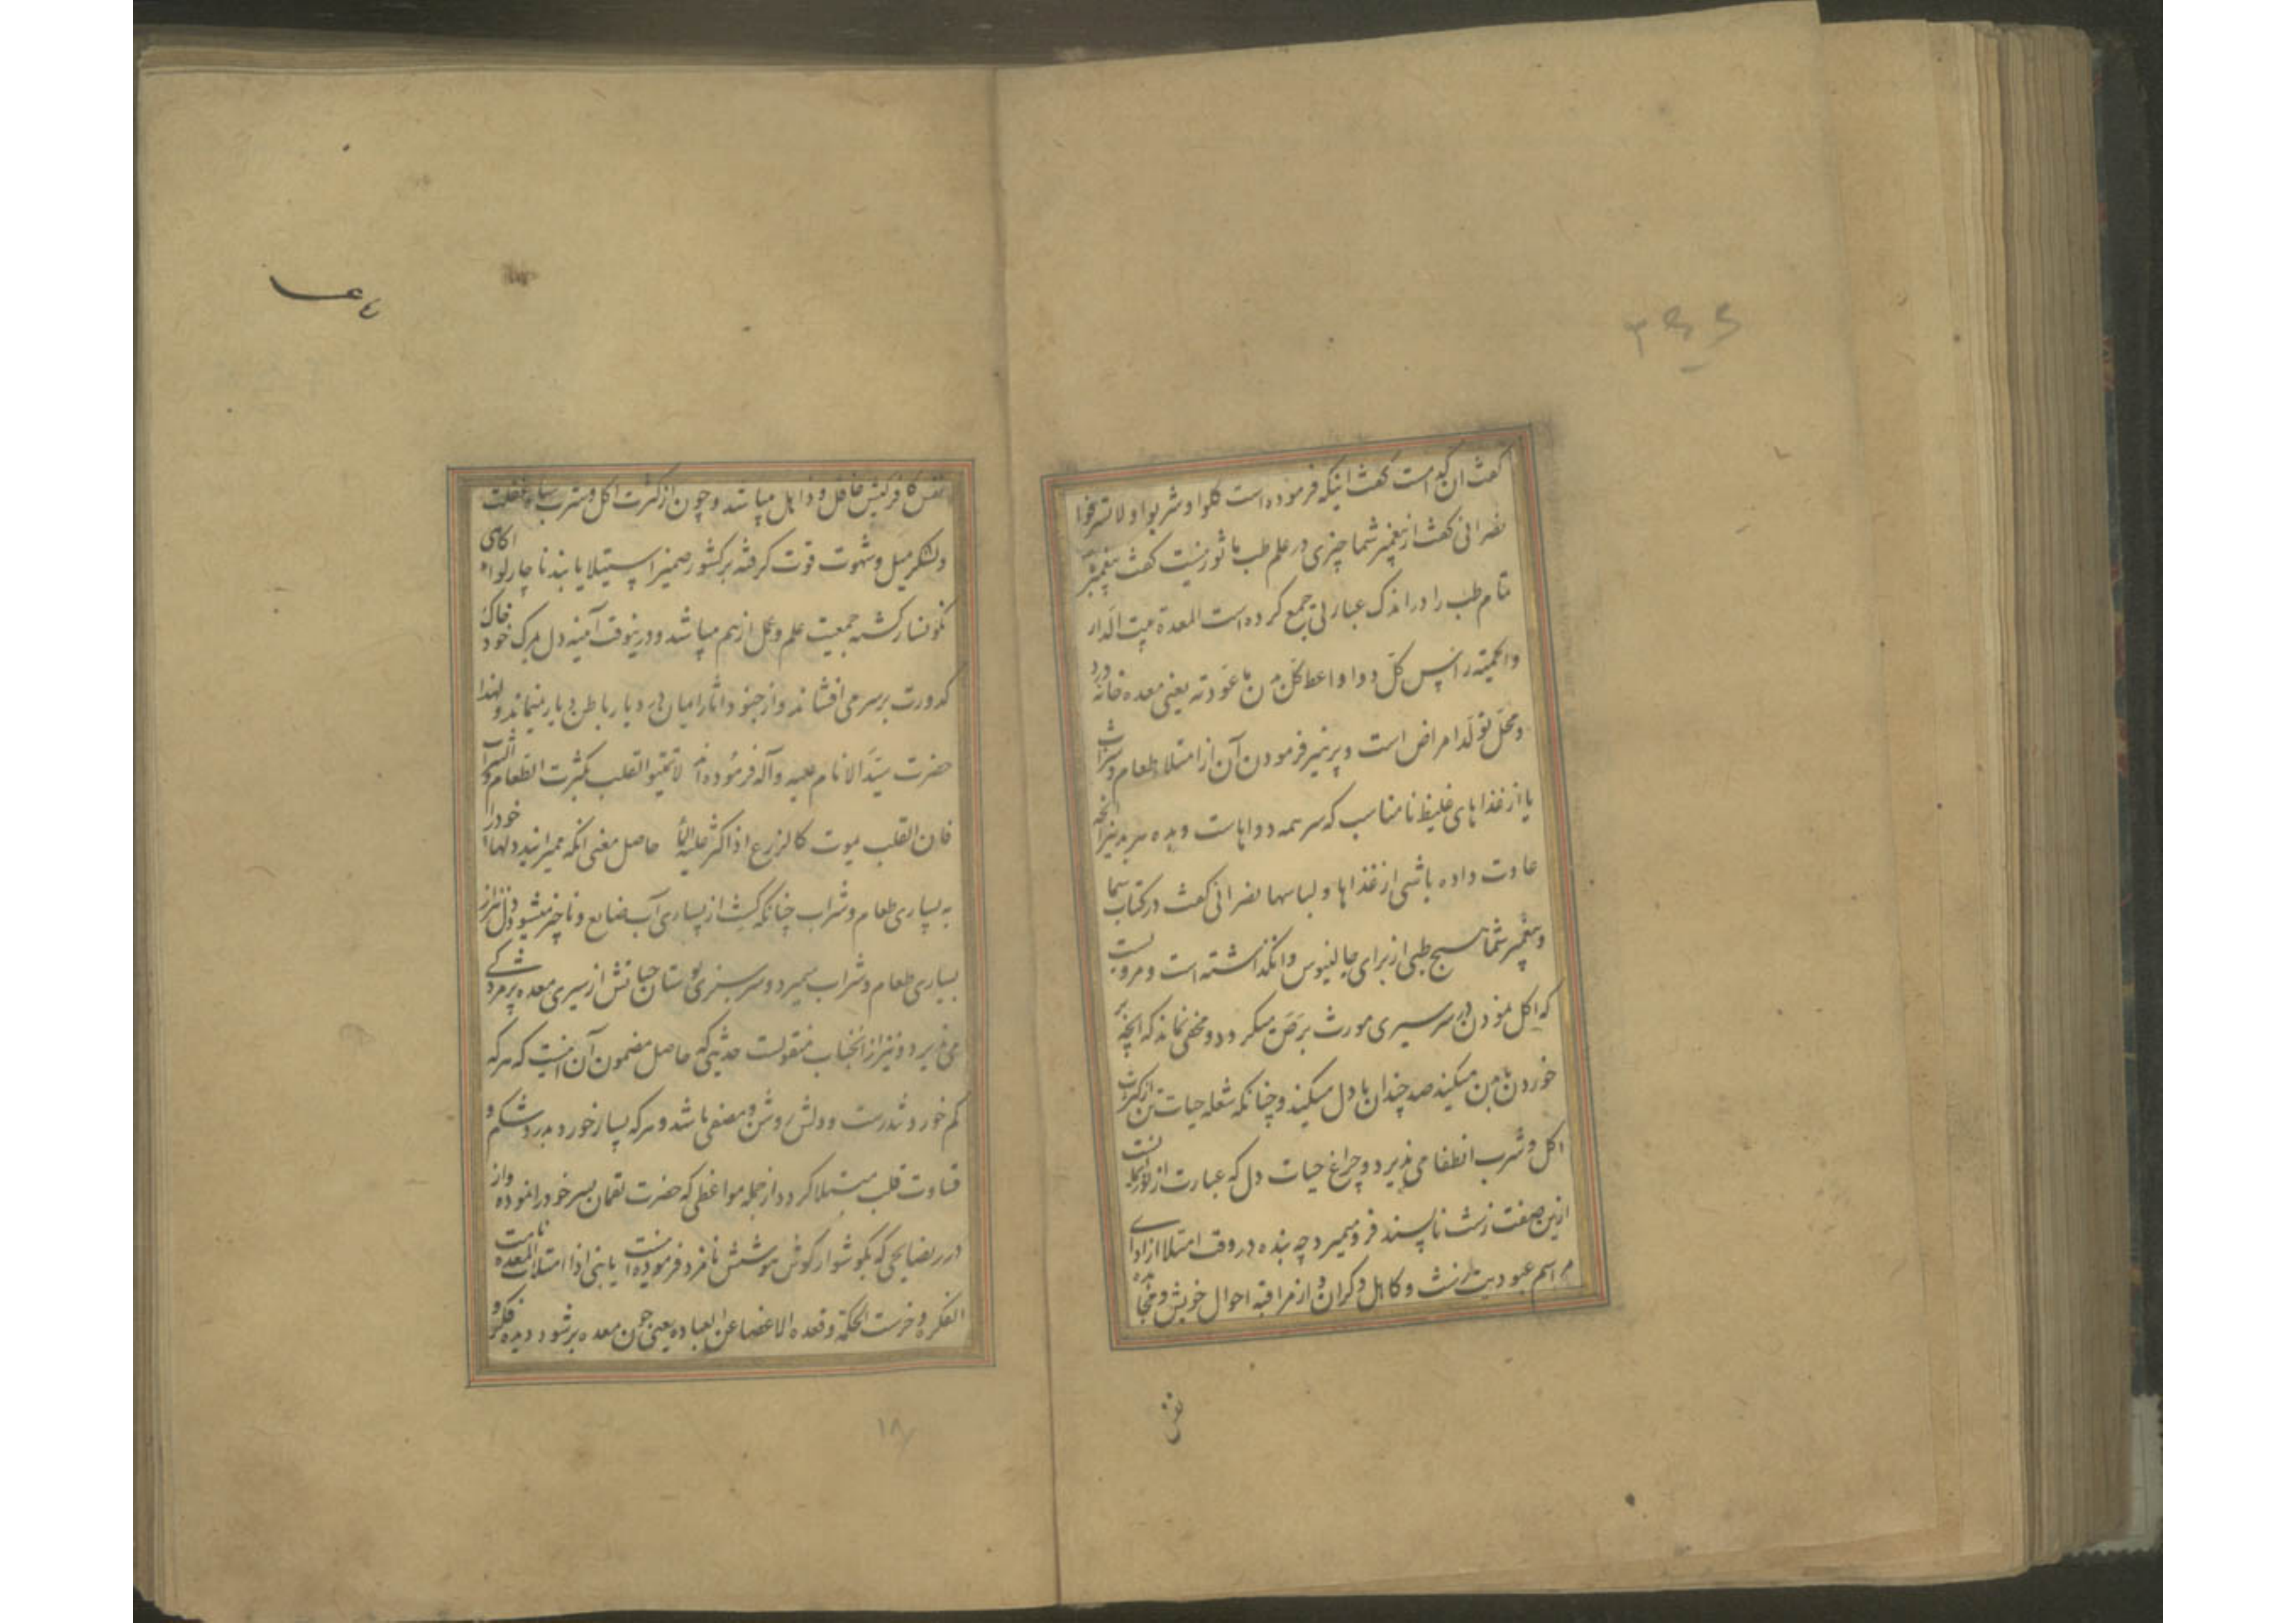 ۳۶۶
کفت ان کدامست کفت اینکه فرموده است کلوا وشربوا ولا تسرفوا
نصرانی کفت از پیغمبر شما چیزی در علم طب ماثور نیست کفت پیغمبر
تمام طب را در اندک عبارتی جمع کرده است المعدة بیت الدار
والحمیته راس کل دوا واعط کل بدن ما عودته یعنی معده خانه درد
ومحل تولد امراض است وپرهیز فرمودن آن از امتلا طعام وشراب
یا از غذاهای غلیظ نامناسب که سر همه دواهاست وبده هر بدنیرا انچه
عادت داده باشی از غذاها ولباسها نصرانی کفت در کتاب شما
وپیغمبر شما هیچ طبی از برای جالینوس وانکذاشته است ومرویست
که اکل نمودن در سر سیری مورث برص میکردد ومخفی نماند که انچه پر
خوردن با بدن میکند صد چندان با دل میکند وچنانکه شعله حیات تن از کثرت
اکل وشرب انطفا می پذیرد وچراغ حیات دل که عبارت از نور
ازین صفت زشت ناپسند فرو میمیرد چه بنده در وقت امتلا از ادای
مراسم عبودیت وکاهل وکران واز مراقبه احوال خویش و
نفس
نفس کافرکیش غافل وذاهل میباشد وچون از کثرت اکل وشرب سپاه غفلت
ولشکر میل وشهوت قوت کرفته بر کشور ضمیر استیلا یابند ناچار لوای اکاهی
نکونسار کشته جمعیت علم وعمل از هم میپاشد ودرینوقت آینه دل بمرک خود خاک
کدورت بر سر می افشاند واز جنود اثار ایمان در دیار باطن دیار نمیماند ولهذا
حضرت سید الانام علیه وآله فرموده اند لا تمیتوا القلب بکثرت الطعام والشراب
فان القلب یموت کالزرع اذا اکثر علیه الماء حاصل معنی انکه ممیرانید دلهای خود را
به بسیاری طعام وشراب چنانکه کشت از بسیاری آب ضایع وناچیز میشود دل نیز از
بسیاری طعام وشراب بمیرد وسرسبزی بوستان حیاتش از سیری معده پژمردکی
می پذیرد ونیز از انجناب منقولست حدیثی که حاصل مضمون آن اینست که هر که
کم خورد تندرست ودلش روشن ومصفی باشد وهر که بسیار خورد بدرد شکم و
قساوت قلب مبتلا کردد از جمله مواعظی که حضرت لقمان بسر خود را نموده واز
درر نصایحی که بکوشوار کوش هوشش نامزد فرموده اینست یا بنی اذا امتلات المعدة نامت
الفکره وخرست الحکمة وقعده الاعضا عن العباده یعنی چون معده پر شود دیده فکر و
۱۸